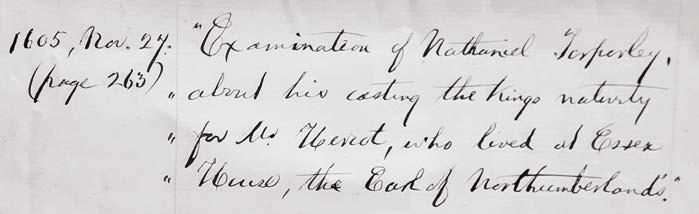 1605, Nov. 27. "Examination of Nathaniel Torporley,
(page 263) " about his casting the kings nativity
" for Mr Heriot, who lived at Essex
" House, the Earl of Northumberland's."